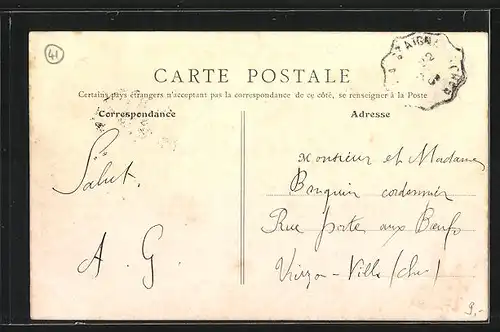 41
ST AIGN
CHER
22
CARTE POSTALE
Certains pays étrangers n'acceptant pas la correspondance de ce côté, se renseigner à la Poste
Correspondance
Adresse
Salut.
A. G.
Monsieur et Madame
cordonnier
Rue porte aux Bœufs
Vierzon-Ville (Cher)
9,-